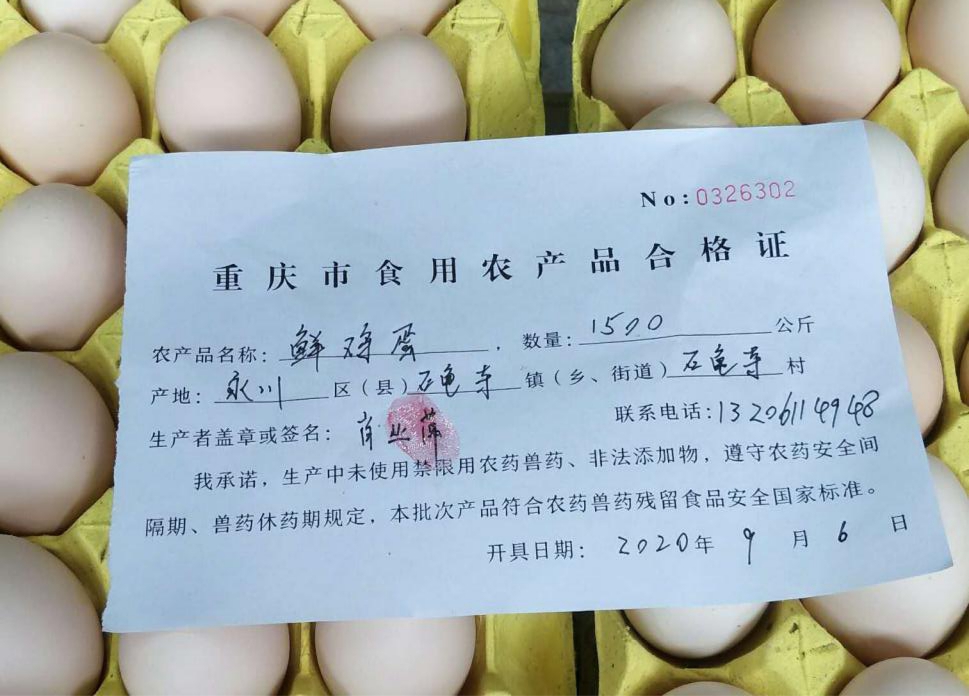 No:0326302
重庆市食用农产品合格证
农产品名称：鲜鸡蛋，数量：1500公斤
产地：永川区（县）石龟寺镇（乡、街道）石龟寺村
生产者盖章或签名：肖 联系电话：13206114948
我承诺，生产中未使用禁限用农药兽药、非法添加物，遵守农药安全间
隔期、兽药休药期规定，本批次产品符合农药兽药残留食品安全国家标准。
开具日期：2020年9月6日